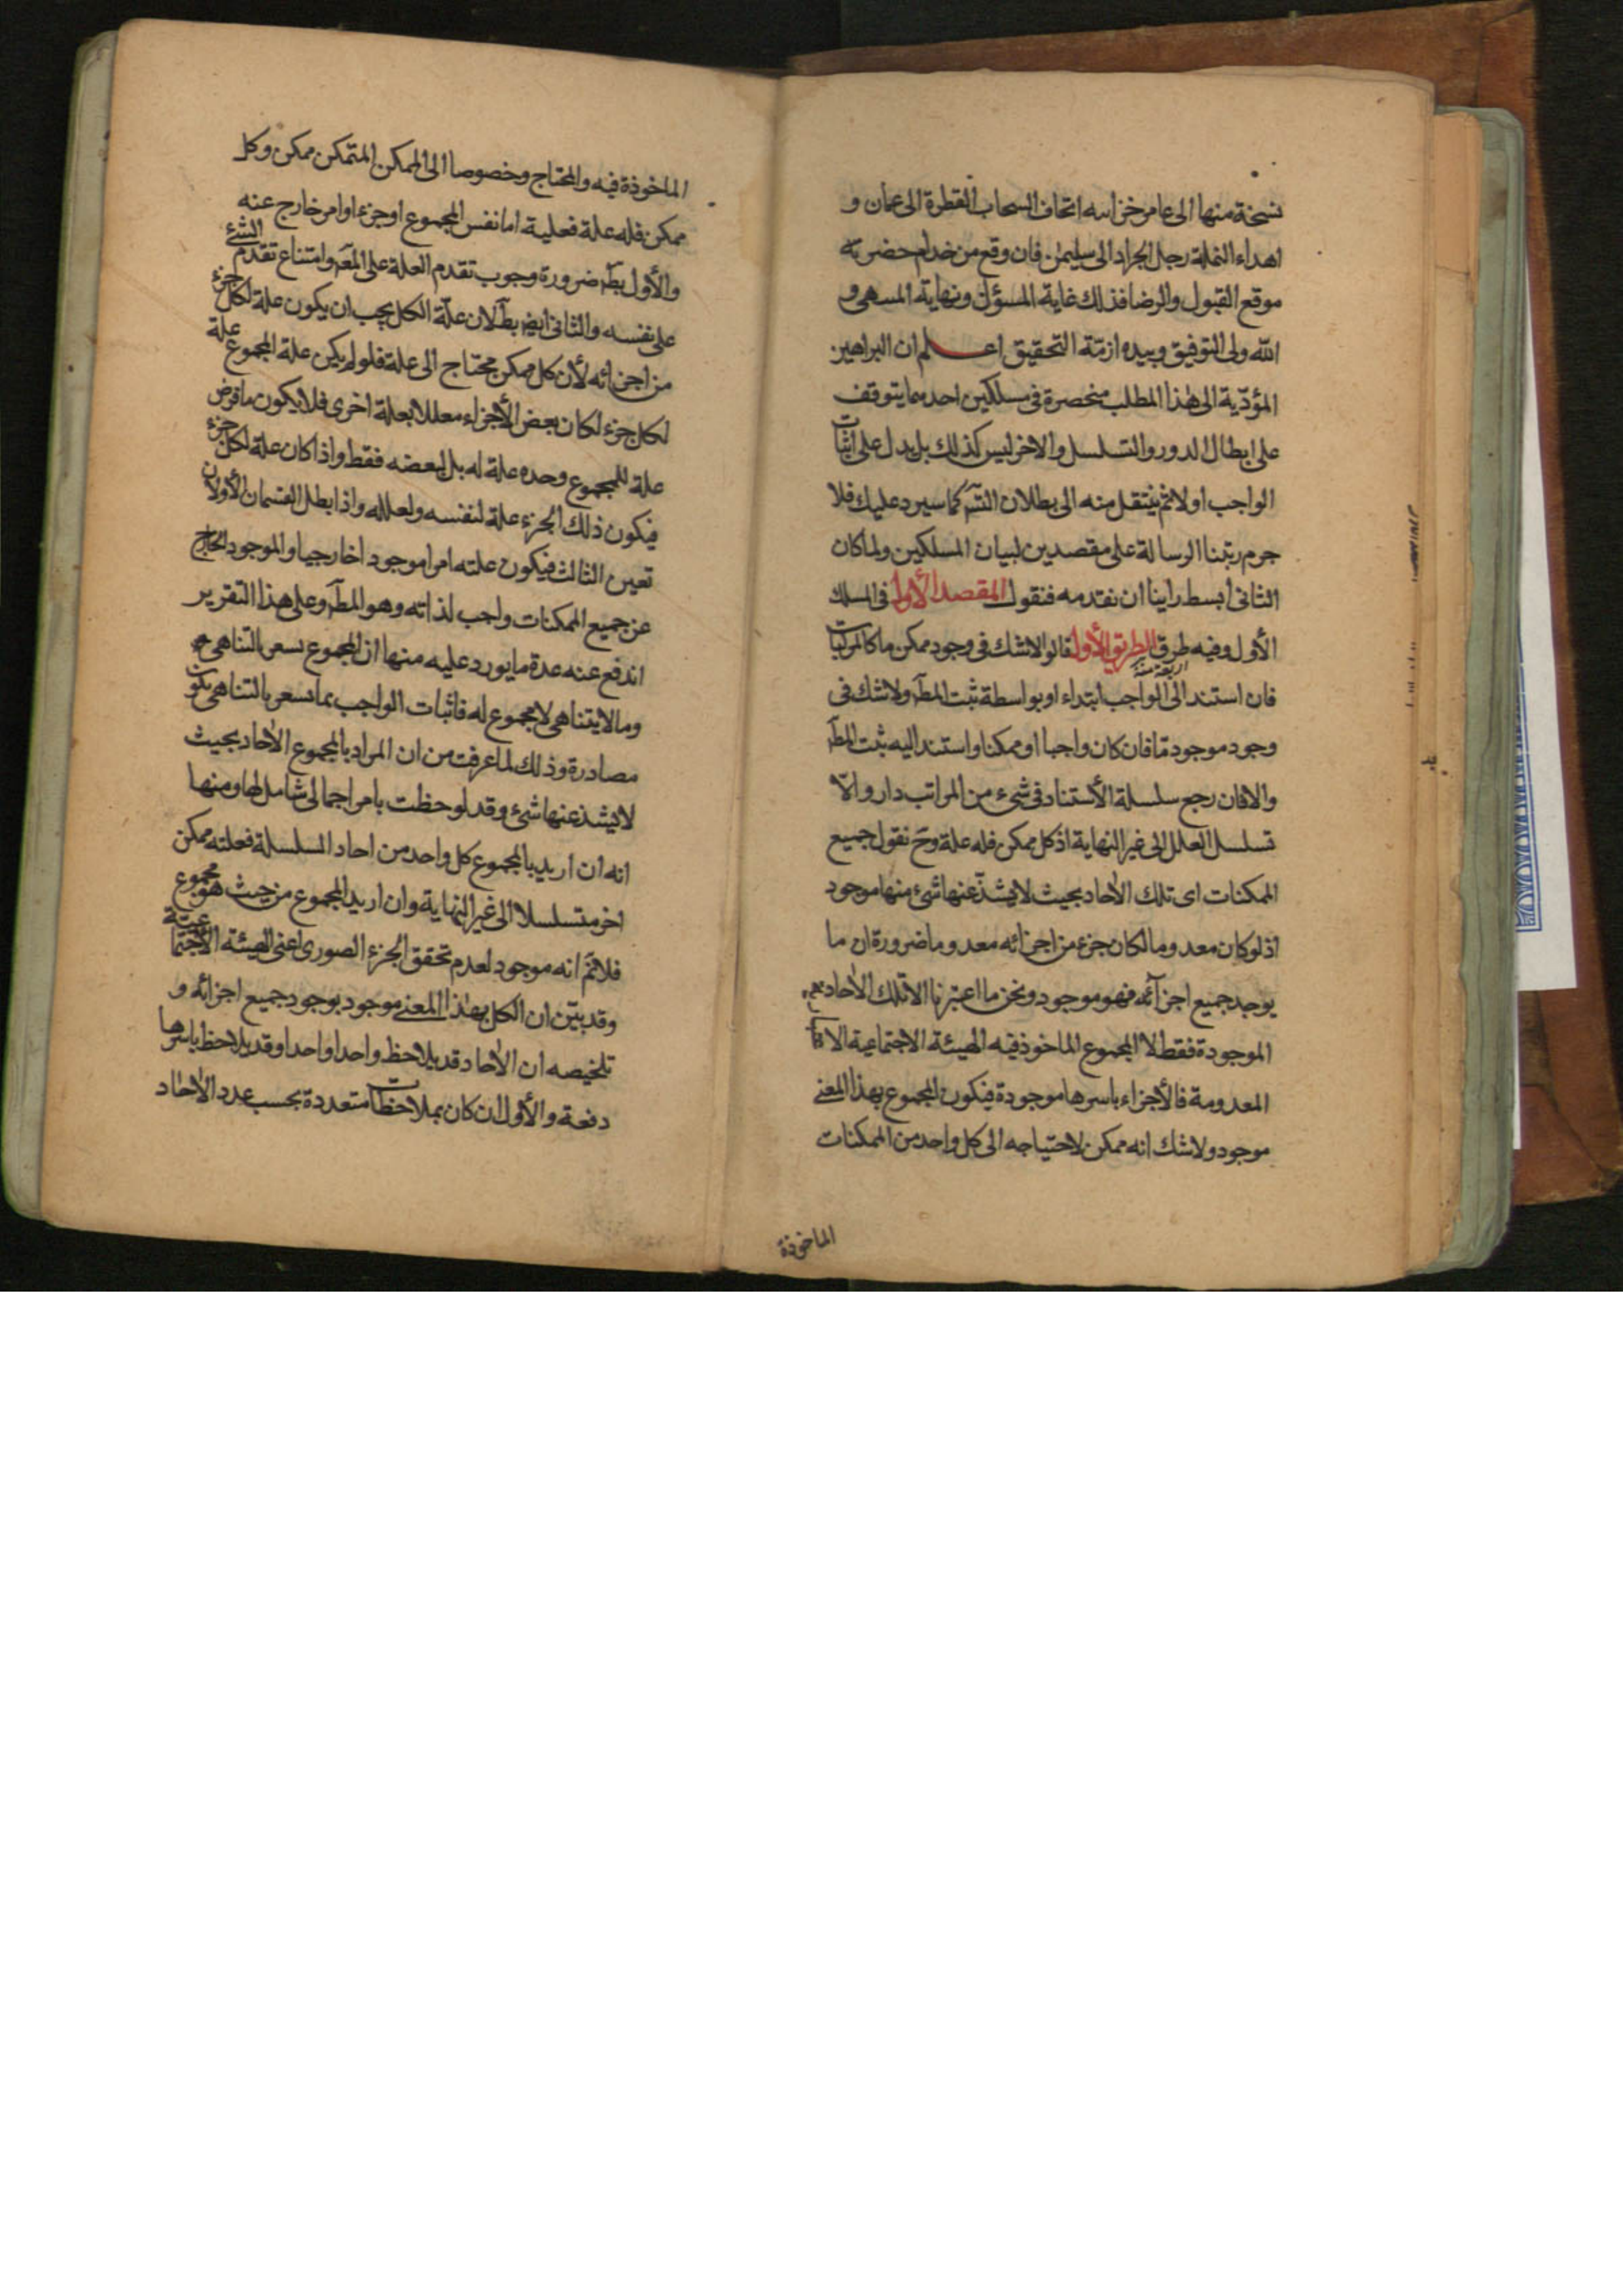 نسخة منها الى عامر خزانته اتحاف السحاب القطرة الى عمان و
اهداء النملة رجل الجراد الى سليمن فان وقع من خدام حضرته
موقع القبول والرضا فذلك غاية المسؤل ونهاية المسعى و
الله ولى التوفيق وبيده ازمّة التحقيق اعلم ان البراهين
المؤدّية الى هذا المطلب منحصرة فى مسلكين احدهما يتوقف
على ابطال الدور والتسلسل والاخر ليس كذلك بل يدل على اثبات
الواجب اولا ثم ينتقل منه الى بطلان التسّ كما سيرد عليك فلا
جرم رتبنا الرسالة على مقصدين لبيان المسلكين ولما كان
الثانى أبسط راينا ان نقدمه فنقول المقصد الأول فى المسلك
الأول وفيه طرق الطريق الأول قالوا لاشك فى وجود ممكن ما كالمركبات
فان استند الى الواجب ابتداء او بواسطة ثبت المطـ ولاشك فى
وجود موجود مّا فان كان واجبا او ممكنا واستند اليه ثبت المطـ
والا فان رجع سلسلة الأستناد فى شىء من المراتب دار والّا
تسلسل العلل الى غير النهاية اذ كل ممكن فله علة وحَ نقول جميع
الممكنات اى تلك الاٰحاد بحيث لايشذّ عنها شىء منها موجود
اذ لو كان معدوما لكان جزء من اجزائه معدوما ضرورة ان ما
يوجد جميع اجزآئه فهو موجود ونحن ما اعتبرنا الا تلك الاٰحاد
الموجودة فقط لا المجموع الماخوذ فيه الهيئة الاجتماعية
المعدومة فالأجزاء باسرها موجودة فيكون المجموع بهذا المعنى
موجود ولاشك انه ممكن لاحتياجه الى كل واحد من الممكنات
الماخوذة
الماخوذة فيه والمحتاج وخصوصا الى الممكن المتمكن ممكن وكل
ممكن فله علة فعلية اما نفس المجموع او جزء او امر خارج عنه
والأول بطـ ضرورة وجوب تقدم العلة على المعـ وامتناع تقدم الشئ
على نفسه والثانى ايضـ بطـ لان علّة الكل يجب ان يكون علة لكل جزء
من اجزائه لأن كل ممكن محتاج الى علة فلو لم يكن علة المجموع علة
لكل جزء لكان بعض الأجزاء معللا بعلة اخرى فلا يكون ما فرض
علة للمجموع وحده علة له بل لبعضه فقط واذا كان علة لكل جزء
فيكون ذلك الجزء علة لنفسه ولعلله واذا بطل القسمان الأولان
تعين الثالث فيكون علته امرا موجودا خارجيا والموجود الخارج
عن جميع الممكنات واجب لذاته وهو المطـ وعلى هذا التقرير
اندفع عنه عدة ما يورد عليه منها ان المجموع يسعر بالتناهى
وما لايتناهى لا مجموع له فاثبات الواجب بما يسعر بالتناهى يكون
مصادرة وذلك لما عرفت من ان المراد بالمجموع الاٰحاد بحيث
لايشذ عنها شئ وقد لوحظت بامر اجمالى شامل لها ومنها
انه ان اريد بالمجموع كل واحد من احاد السلسلة فعلته ممكن
اخر متسلسلا الى غير النهاية وان اريد المجموع من حيث هو مجموع
فلا نمّ انه موجود لعدم تحقق الجزء الصورى اعنى الهيئة الأجتماعيّة
وقد بيّن ان الكل بهذا المعنى موجود بوجود جميع اجزائه و
تلخيصه ان الاٰحاد قد يلاحظ واحدا واحدا وقد يلاحظ باسرها
دفعة والأول ان كان بملاحظات متعددة بحسب عدد الاٰحاد